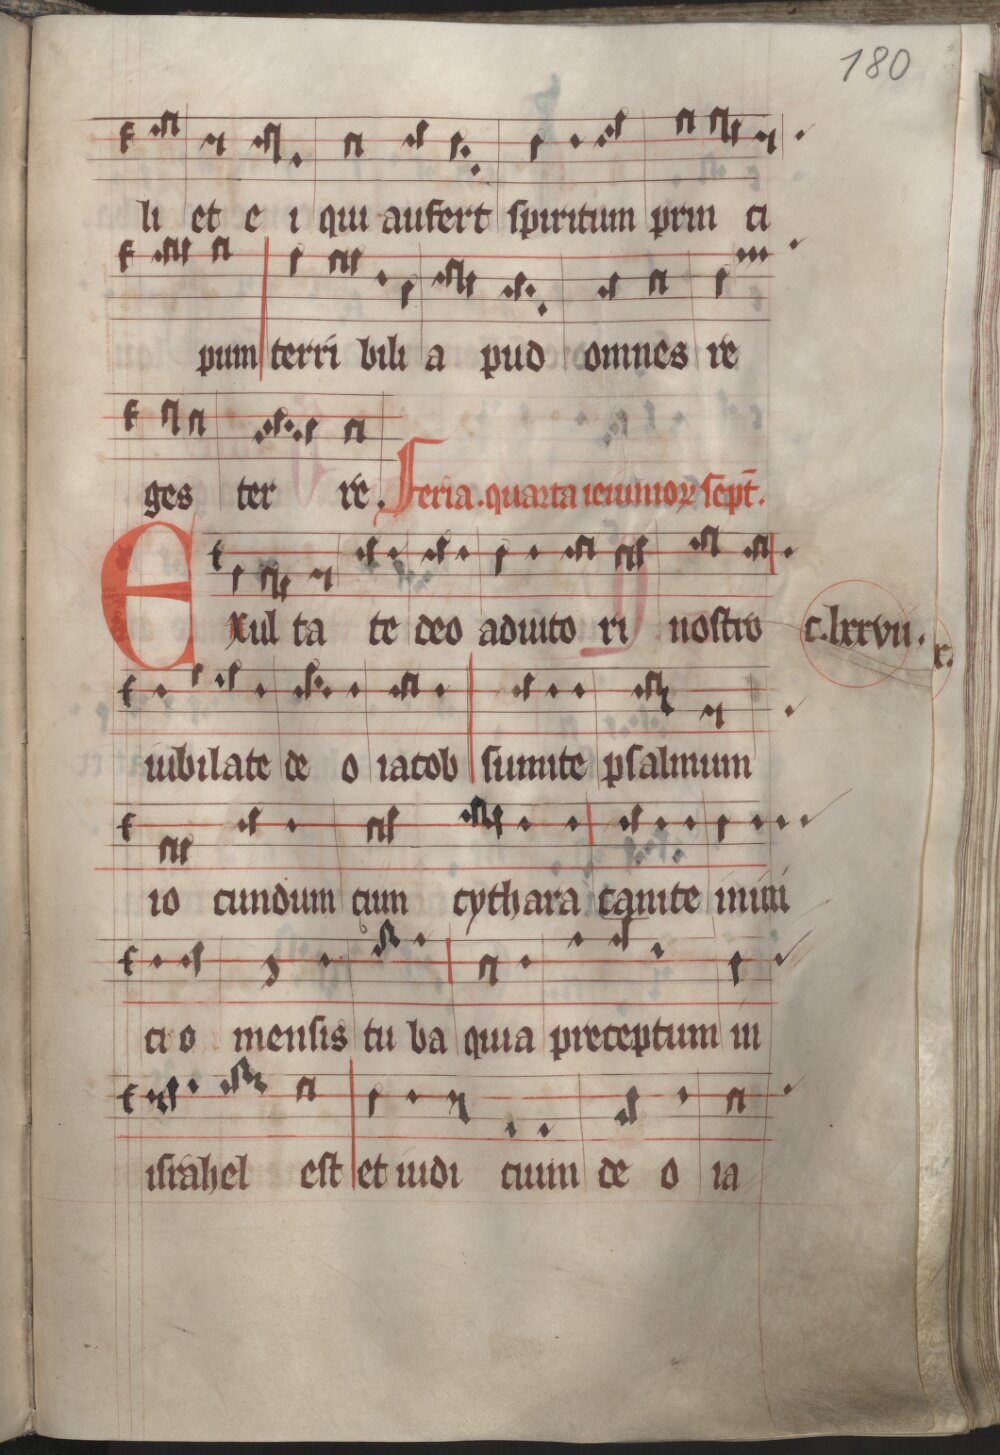 180
li et e i qui aufert spiritum prin ci
pum terri bili a pud omnes re
ges ter re. Feria. quarta ieiunioꝝ sept̄.
Exul ta te deo adiuto ri nostro c.lxxvii.
iubilate de o iacob sumite psalmum
io cundum cum cythara canite inini
ci o mensis tu ba quia preceptum in
israhel est et iudi cium de o ia